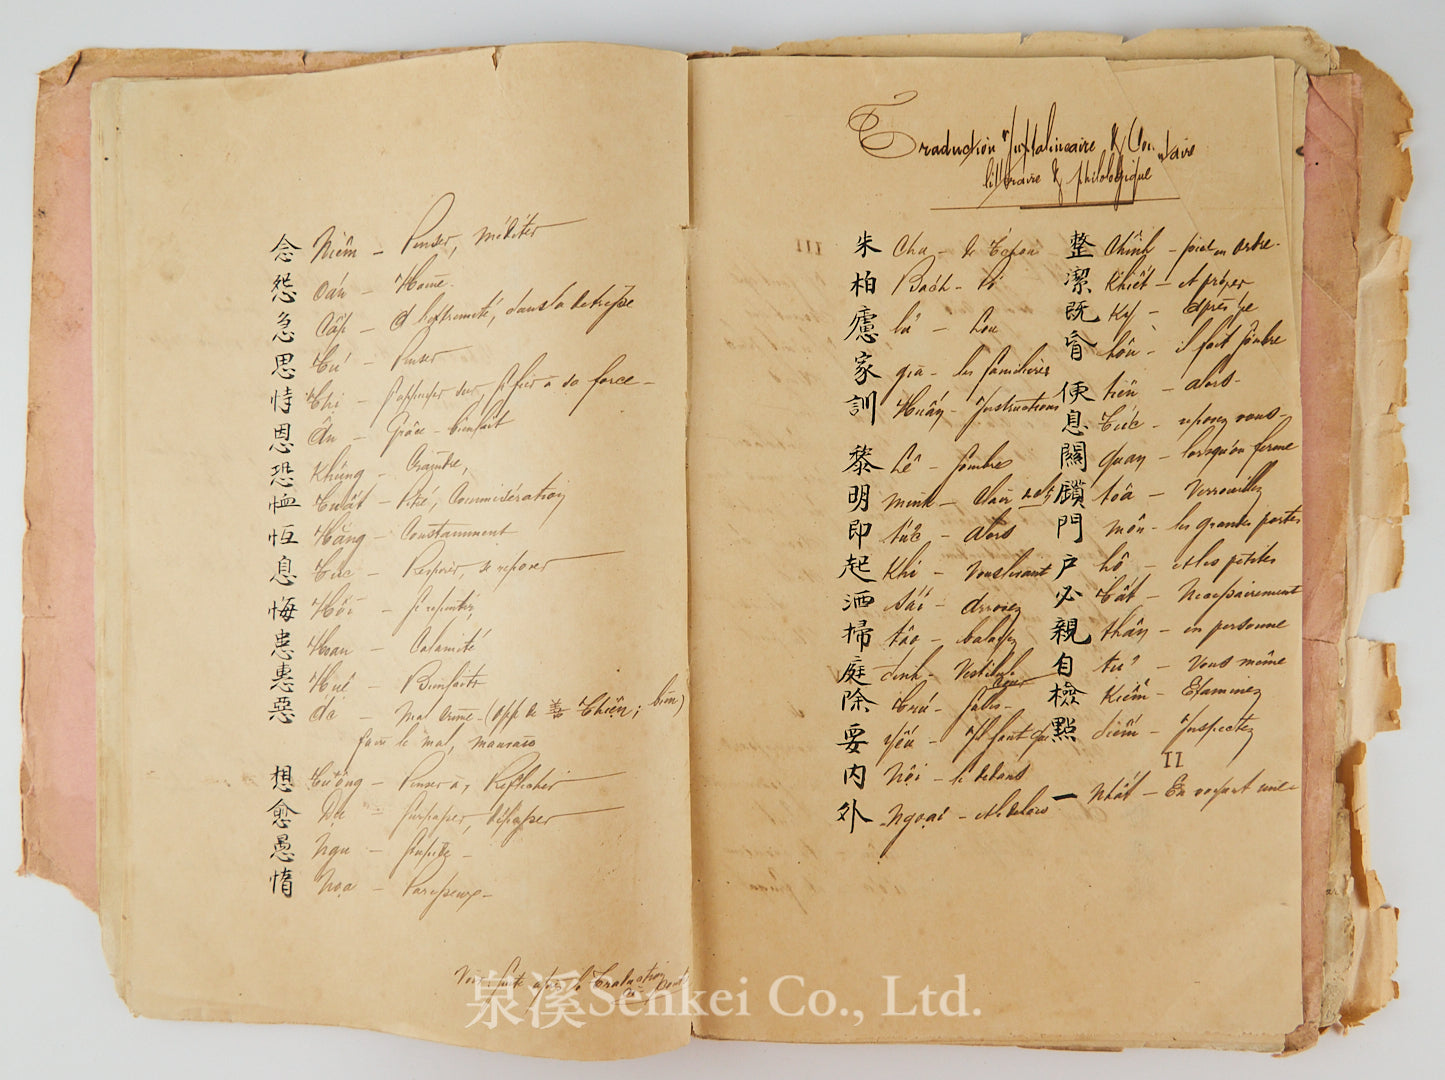 念 Niêm – Penser, méditer
怨 Oán – Haine.
急 Câṕ – A l'extremité, dans la detresse
思 Tú – Penser
恃 Thi – s'appuyer sur, se fier à sa force –
恩 Ân – Grâce – bienfait
恐 Khúng – Craindre,
恤 Tuất – Pitié, Commisération
恆 Hằng – Constamment
息 Túc – Respirer, se reposer
悔 Hối – se repentir,
患 Hoan – Calamité
惠 Huê – Bienfaits
惡 Ác – Mal crime – (opp de 善 Thiện; bien)
faire le mal, mauvais
想 Tưởng – Penser à, Réfléchir
愈 Du – surpasser, dépasser
愚 Ngu – Stupide –
惰 Nọa – Paresseux –
Voir suite après la Traduction
Traduction "Juxtalinéaire & Com taire
littéraire & philologique"
朱 Chu – le
柏 Bách –
廬 lu – Lou
家 gia – les familières
訓 Huấn – Instructions
黎 Lê – sombre
明 minh – Clair
即 túc – alors
起 Khi – Vous levant
洒 sái – arrosez
掃 táo – balayez
庭 đinh – Vestibule
Cour
除 Trú – salle –
要 yếu – Il faut que
内 Nội – le dedans
外 Ngoại – et le dehors
整 Chỉnh – soient en ordre –
潔 Khiết – et propres
既 Ký – après que
昏 hôn – il fait sombre
便 tiên – alors –
息 Túc – reposez vous –
關 quan – lorsqu'on ferme
鎖 tỏa – Verrouillez
門 môn – les grandes portes
户 hô – et les petites
必 Tất – Nécessairement
親 thân – en personne
自 tự – Vous même
檢 Kiểm – Examinez
點 diểm – Inspectez
II
一 Nhất – En voyant une –
泉溪Senkei Co., Ltd.